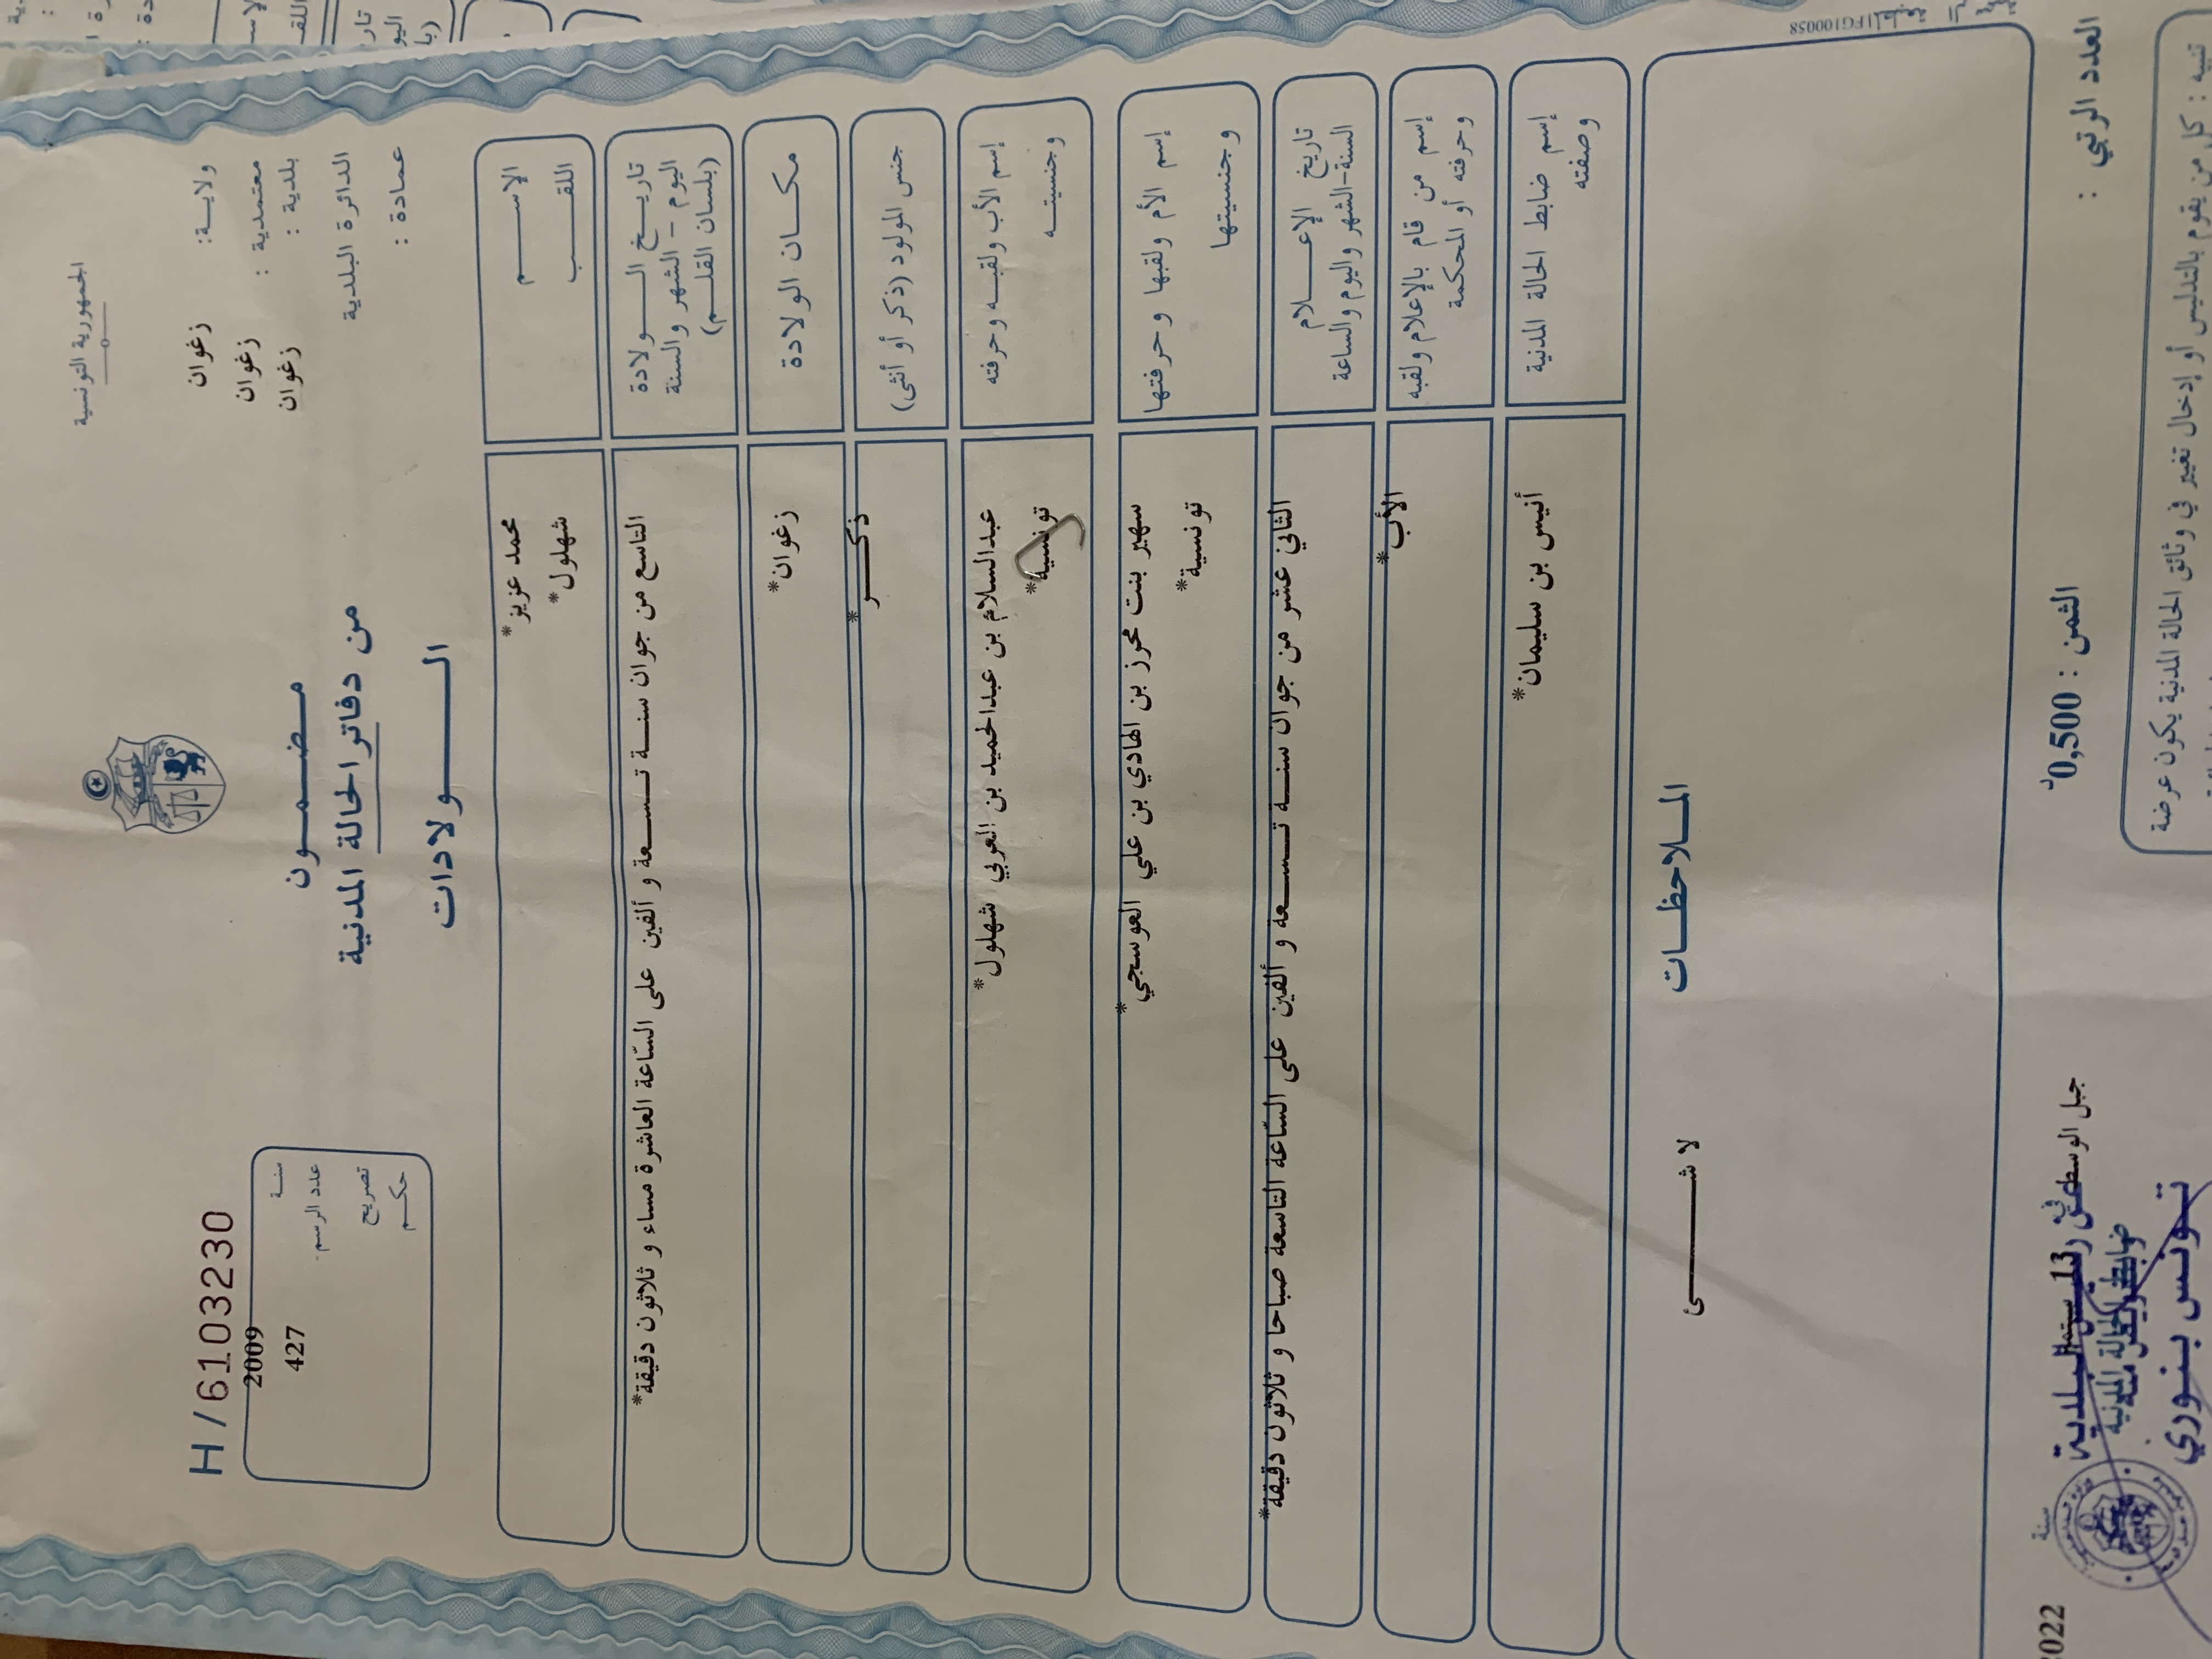 الجمهورية التونسية
ولاية: زغوان
معتمدية : زغوان
بلدية : زغوان
الدائرة البلدية
عمادة :
مضمون
من دفاتر الحالة المدنية
الولادات
H/6103230
سنة 2009
عدد الرسم 427
تصريح
حكم
الاسم محمد عزيز*
اللقب شهلول*
تاريخ الولادة
اليوم - الشهر والسنة
(بلسان القلم)
التاسع من جوان سنة تسعة و ألفين على السّاعة العاشرة مساء و ثلاثون دقيقة*
مكان الولادة زغوان*
جنس المولود (ذكر أو أنثى) ذكر*
إسم الأب ولقبه وحرفته عبدالسلام بن عبدالحميد بن العربي شهلول*
وجنسيته تونسية*
إسم الأم ولقبها وحرفتها سهير بنت محرز بن الهادي بن علي العوسجي*
وجنسيتها تونسية*
تاريخ الإعلام
السنة-الشهر واليوم والساعة
الثاني عشر من جوان سنة تسعة و ألفين على السّاعة التاسعة صباحا و ثلاثون دقيقة*
إسم من قام بالإعلام ولقبه الأب*
وحرفته أو المحكمة
إسم ضابط الحالة المدنية أنيس بن سليمان*
وصفته
الملاحظات
لا شئ
FG100058
العدد الرتبي :
الثمن : 0,500د
جبل الوسط في 13
سنة 2022
ضابط الحالة المدنية
تونس بنوري
تنبيه : كل من يقوم بالتدليس أو إدخال تغيير في وثائق الحالة المدنية يكون عرضة